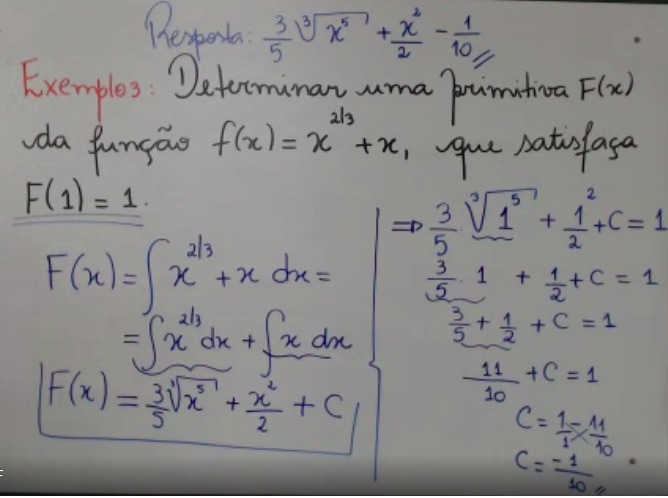 Resposta: 3/5 ∛x⁵ + x²/2 - 1/10
Exemplo 3: Determinar uma primitiva F(x)
da função f(x) = x^2/3 + x, que satisfaça
F(1) = 1.
F(x) = ∫ x^2/3 + x dx =
= ∫ x^2/3 dx + ∫ x dx
F(x) = 3/5 ∛x⁵ + x²/2 + C
⇒ 3/5 . ∛1⁵ + 1²/2 + C = 1
3/5 . 1 + 1/2 + C = 1
3/5 + 1/2 + C = 1
11/10 + C = 1
C = 1/1 - 11/10
C = -1/10